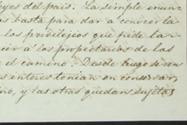 yes del pais. La simple enun
s basta para dar a conocer la
los privilejios que pide la
á los propietarios de las
el camino. Desde luego si con
interes tenian en conservar
no, y las otras quedan sujetas